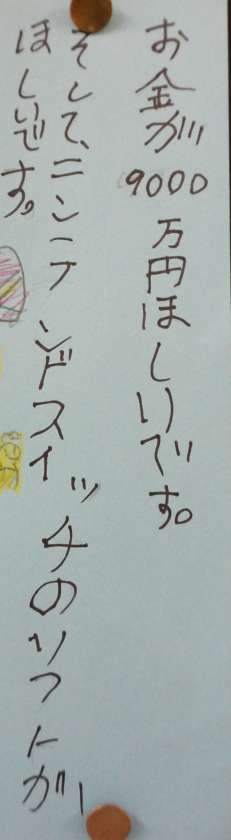 お金が9000万円ほしいです。
そして、ニンテンドスイッチのソフトが
ほしいです。